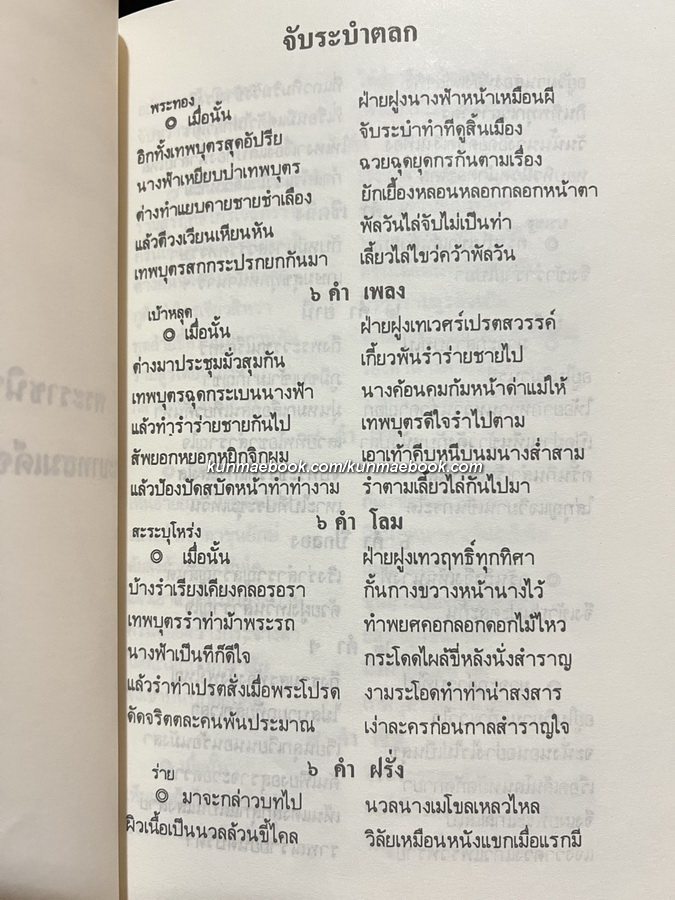 จับระบำตลก
พระทอง
๏ เมื่อนั้น ฝ่ายฝูงนางฟ้าหน้าเหมือนผี
อีกทั้งเทพบุตรสุดอัปรีย จับระบำทำทีดูสิ้นเมือง
นางฟ้าเหยียบบ่าเทพบุตร ฉวยฉุดยุดกรกันตามเรื่อง
ต่างทำแยบคายชายชำเลือง ยักเยื้องหลอนหลอกกลอกหน้าตา
แล้วตีวงเวียนเหียนหัน พัลวันไล่จับไม่เป็นท่า
เทพบุตรสกกระปรกยกกันมา เลี้ยวไล่ไขว่คว้าพัลวัน
๖ คำ เพลง
เบ้าหลุด
๏ เมื่อนั้น ฝ่ายฝูงเทเวศร์เปรตสวรรค์
ต่างมาประชุมมั่วสุมกัน เกี้ยวพันรำร่ายชายไป
เทพบุตรฉุดกระเบนนางฟ้า นางค้อนคมก้มหน้าด่าแม่ให้
แล้วทำรำร่ายชายกันไป เทพบุตรดีใจรำไปตาม
สัพยอกหยอกหยิกจิกผม เอาเท้าคีบหนีบนมนางส่ำสาม
kunmaebook.com/kunmaebook.com
แล้วป้องปัดสบัดหน้าทำท่างาม รำตามเลี้ยวไล่กันไปมา
๖ คำ โลม
สะระบุโหร่ง
๏ เมื่อนั้น ฝ่ายฝูงเทวฤทธิ์ทุกทิศา
บ้างรำเรียงเคียงคลอรอรา กั้นกางขวางหน้านางไว้
เทพบุตรรำท่าม้าพระรถ ทำพยศคอกลอกดอกไม้ไหว
นางฟ้าเป็นทีก็ดีใจ กระโดดไผล้ขี่หลังนั่งสำราญ
แล้วรำท่าเปรตสั่งเมื่อพระโปรด งามระโอดทำท่าน่าสงสาร
ดัดจริตตละคนพ้นประมาณ เง่าละครก่อนกาลสำราญใจ
๖ คำ ฝรั่ง
ร่าย
๏ มาจะกล่าวบทไป นวลนางเมโขลเหลวไหล
ผิวเนื้อเป็นนวลล้วนขี้ไคล วิลัยเหมือนหนังแขกเมื่อแรกมี